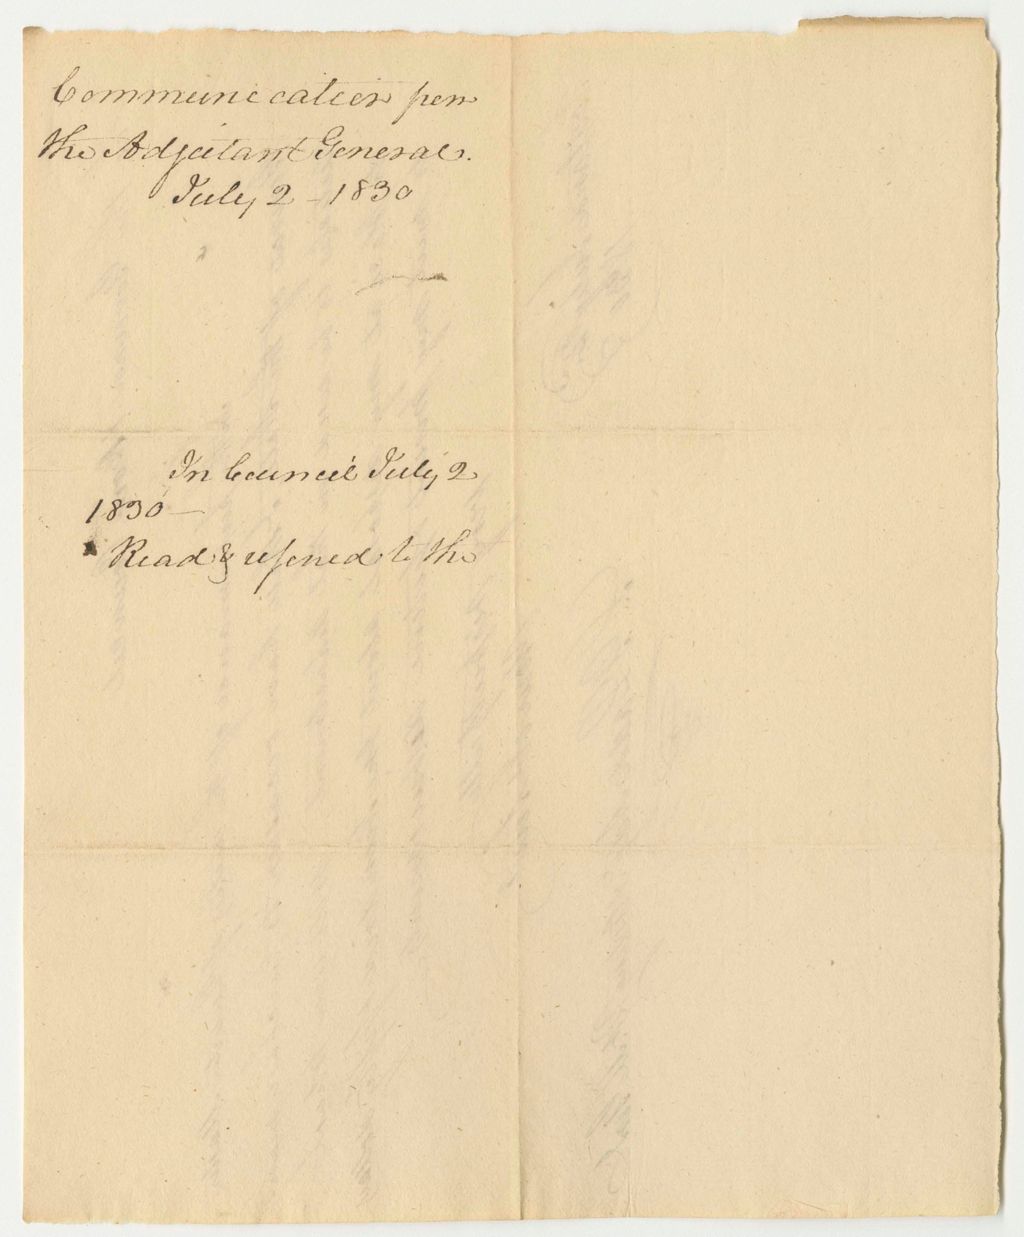 Communication from
the Adjutant General.
July 2 - 1830
In Council July 2
1830 —
Read & referred to the